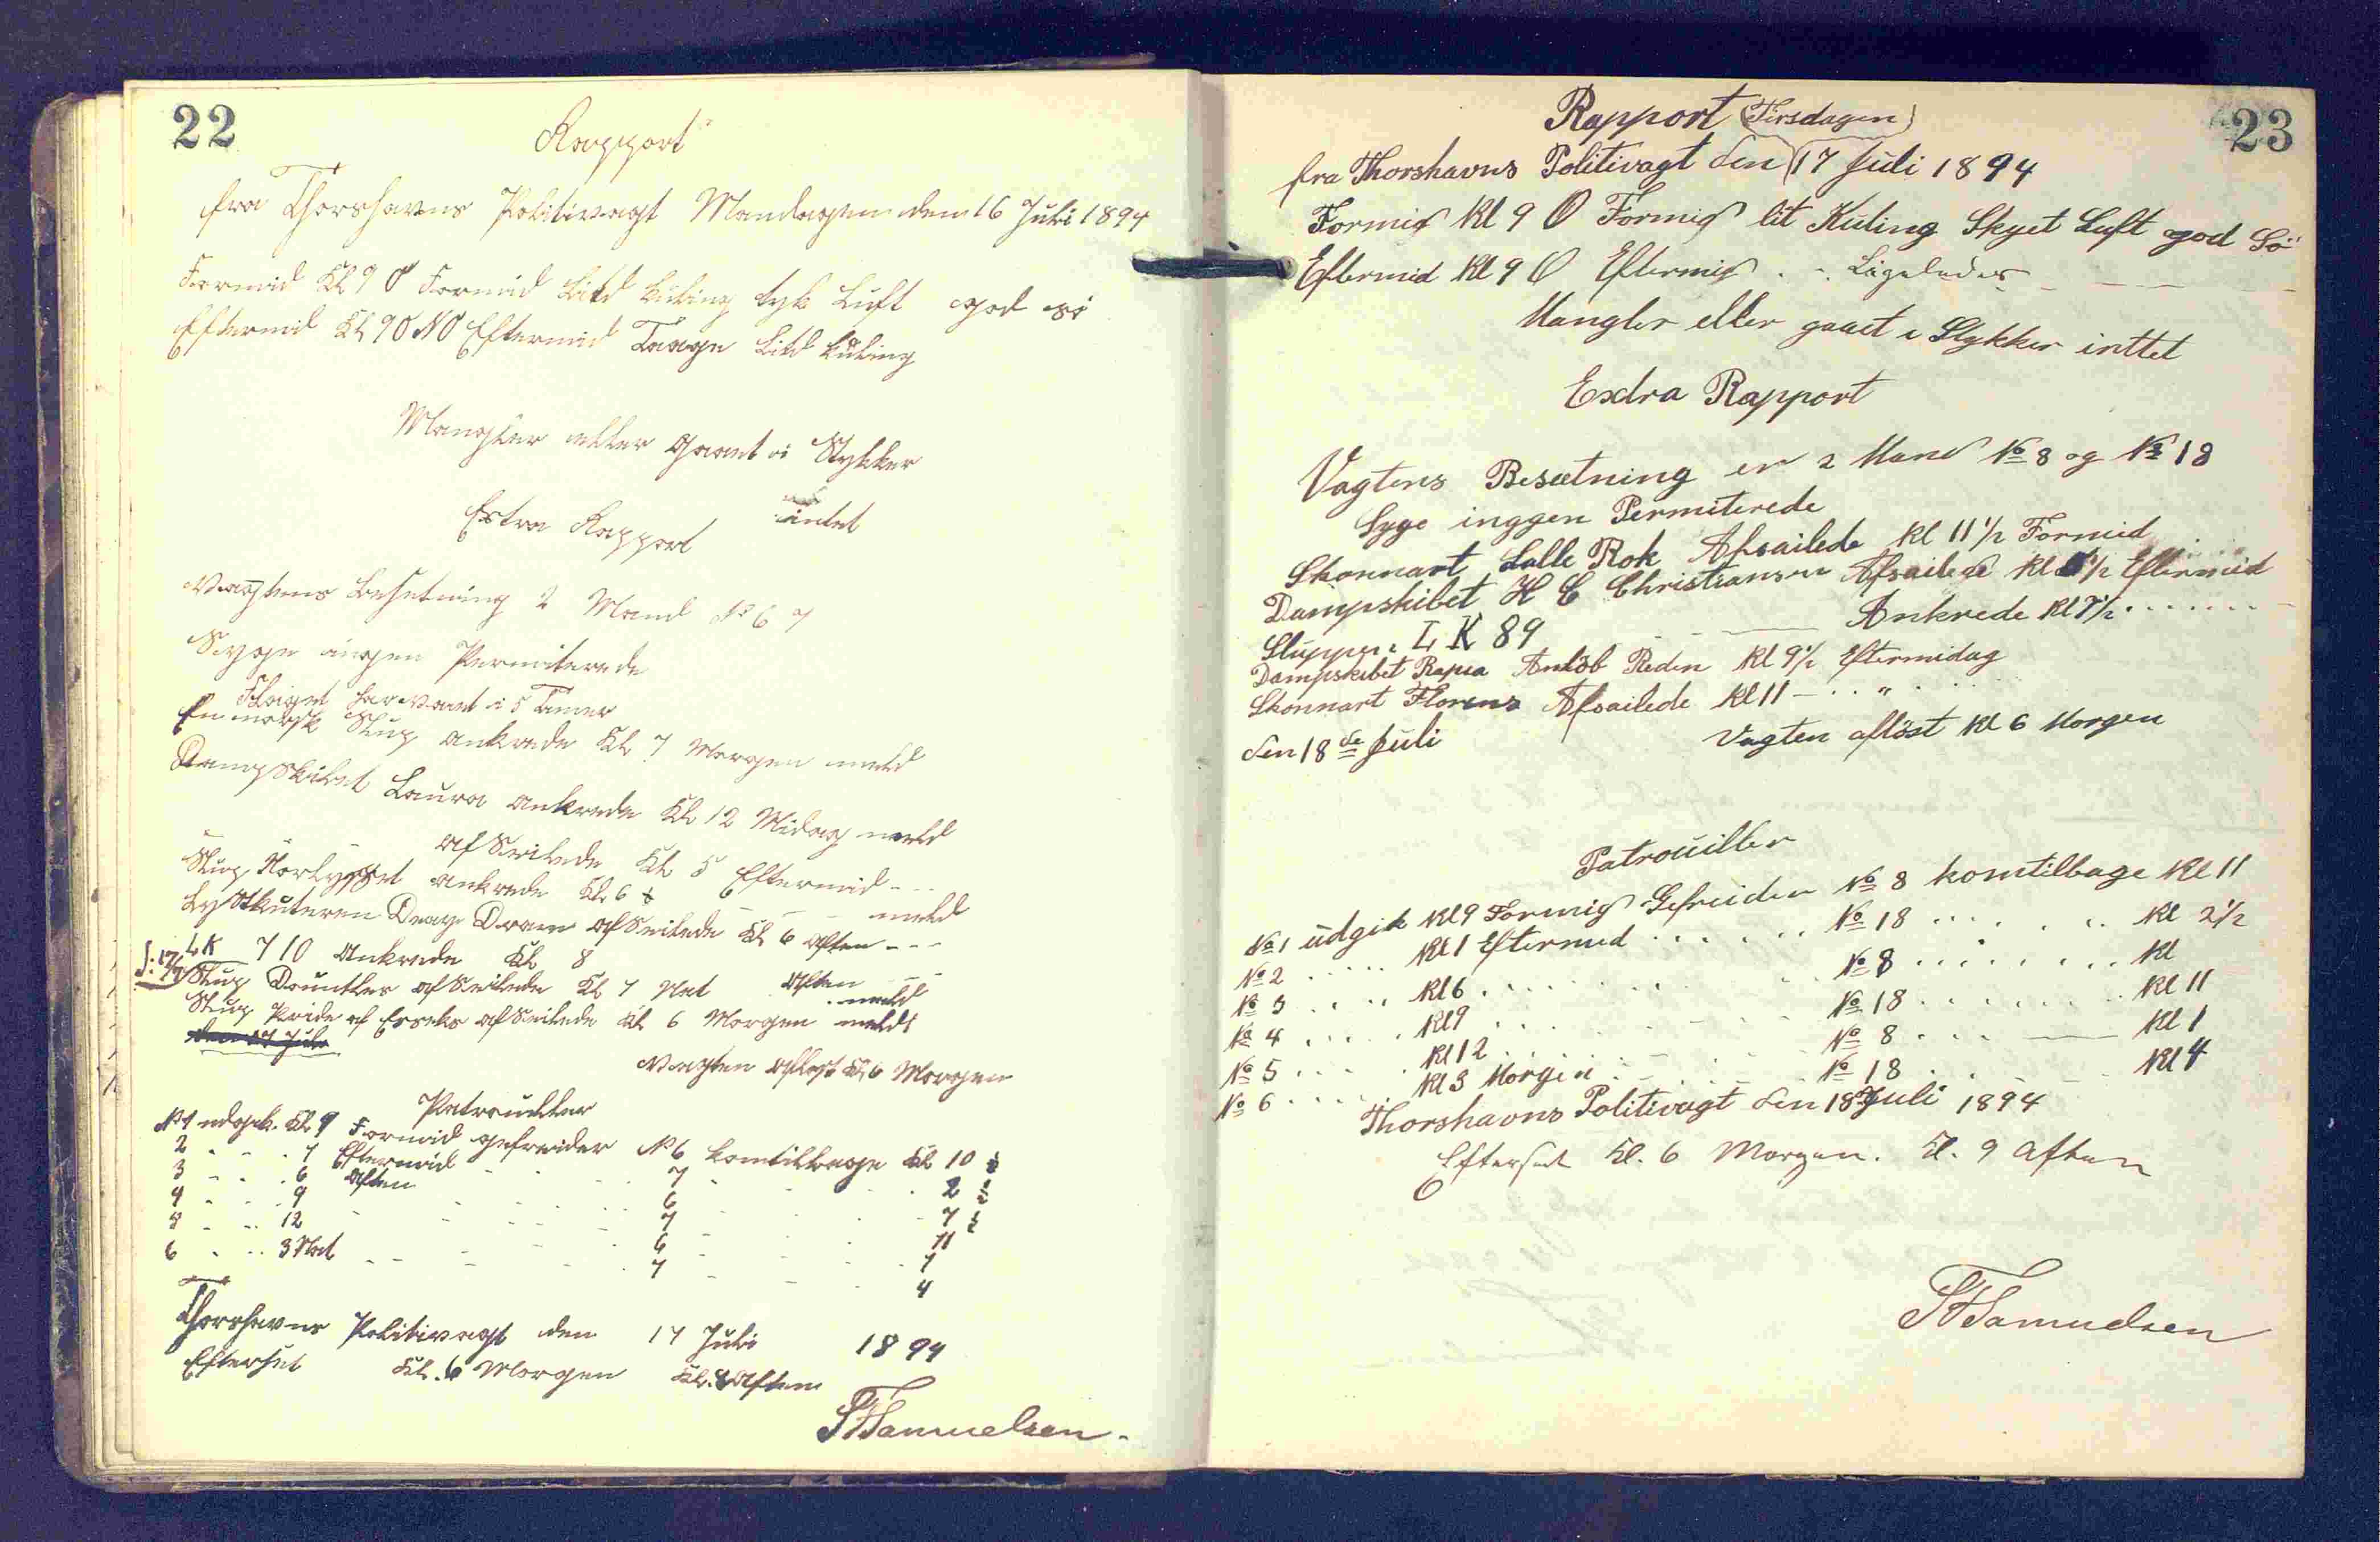 22
Rapport
fra Thorshavns Politivagt Mandagen den 16 Juli 1894
Formid Kl 9 O Formid Litd Kuling tyk Luft god sö
Eftermid Kl 9 O NO Eftermid Taage Litd Kuling
Mangler eller gaaet i Stykker
intet
Extra Rapport
Vagtens Besetning 2 Mand No 6 7
Syge ingen Permiterede
Flaget har vaaet i 5 Timer
En norsk Slup ankrede Kl 7 Morgen meld
Dampskibet Laura ankrede Kl 12 Midag meld
afSeilede Kl 5 Eftermid - - -
Slup Norlyset ankrede Kl 6 ½ - - meld
LystKuteren afSeilede Kl 6 Aften - - -
LK 710 Ankrede Kl 8 Aften - -
Slup afSeilede Kl 7 Nat meld
Slup Pride of Esseks afSeilede Kl 6 Morgen meldt
den 17 Juli
Vagten aflöst Kl 6 Morgen
Patrouller
No 1 udgik. Kl. 9 Formid gefreider No 6 komtilbage Kl 10 ½
2 - - - 1 Eftermid - - 7 - - 2 ½
3 - - - 6 Aften - - 6 - - 7 ½
4 - - - 9 - - 7 - - 11
5 - - - 12 - - 6 - - 1
6 - - - 3 Nat - - 7 - - 4
Thorshavns Politivagt den 17 Juli 1894
Efterset Kl. 6 Morgen Kl. Aften
Samuelsen.
23
Rapport (Tirsdagen)
fra Thorshavns Politivagt den 17 Juli 1894
Formid Kl 9 O Formid lit Kuling Skyet Luft god Sö
Eftermid Kl 9 O Eftermid . - Ligeledes - - - -
Mangler eller gaaet i Stykker inttet
Exdra Rapport
Vagtens Besætning er 2 Mand No 8 og No 18
Syge inggen Permiterede
Skonnart Lalla Rok Afsailede kl 11½ Formid
Dampskibet H C Christiansen Afsailede kl ½ Eftermid
Sluppen L K 89 - - Ankrede kl 7½ . . . . . .
Dampskibet Anlöb Reden kl 9½ Eftermidag
Skonnart Florens Afsailede kl 11 - . . " .
den 18de Juli Vagten aflöst kl 6 Morgen
Patrouiller
No 1 udgik kl 9 Formid Gefreider No 8 komtilbage kl 11
No 2 . . . . . kl 1 Eftermid . . . . . . No 18 . . . . . kl 2½
No 3 . . . . kl 6 . . . . . . No 8 . . . . . . kl
No 4 . . . . . kl 9 . . . . . No 18 . . . . . . kl 11
No 5 . . . . . kl 12 . . . . No 8 . . . — kl 1
No 6 . . . . . kl 3 Morgen . - . - No 18 . . . kl 4
Thorshavns Politivagt den 18de Juli 1894
Efterset Kl. 6 Morgen. Kl. 9 Aften
Samuelsen